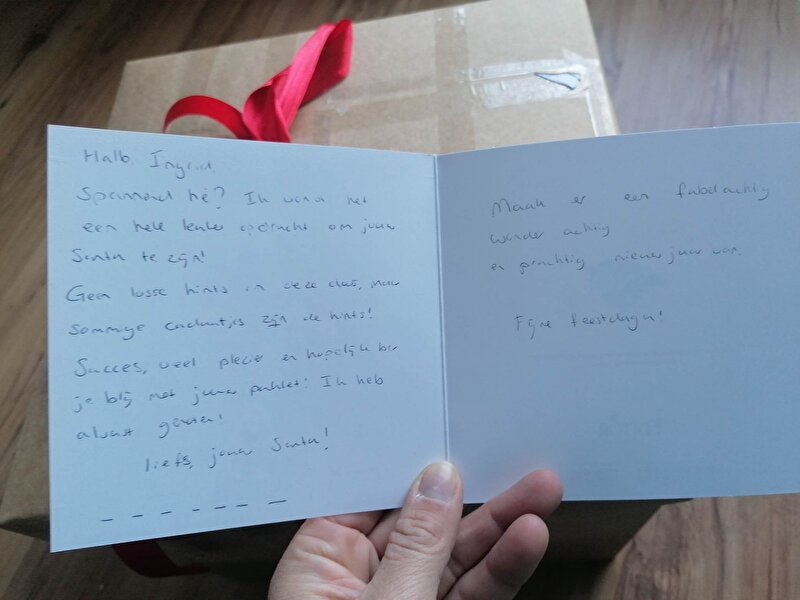 Hallo Ingrid,
Spannend hè? Ik vond het
een hele leuke opdracht om jouw
Santa te zijn!
Geen losse hints in deze doos, maar
sommige cadeautjes zijn de hints!
Succes, veel plezier en hopelijk ben
je blij met jouw pakket! Ik heb
alvast genoten!
liefs, jouw Santa!
_ _ _ _ _ _ _
Maak er een fabelachtig
wonder achtig
en prachtig nieuw jaar van.
Fijne feestdagen!